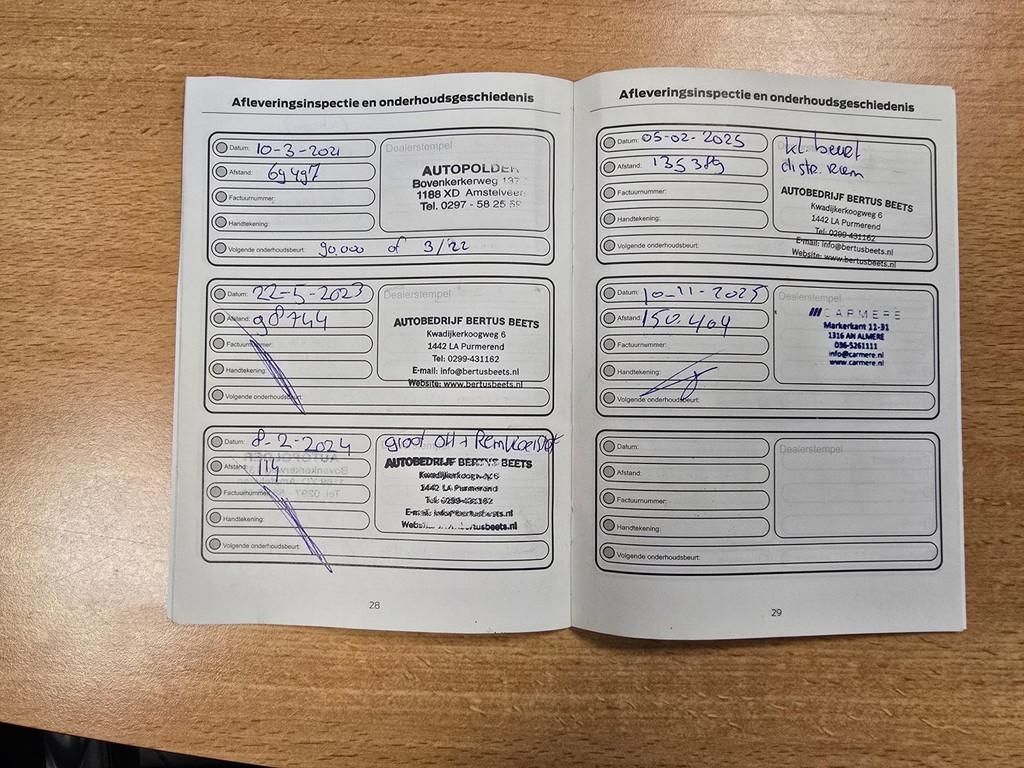 Afleveringsinspectie en onderhoudsgeschiedenis
Datum: 10-3-2021
Afstand: 69497
Factuurnummer:
Handtekening:
Volgende onderhoudsbeurt: 90.000 of 3/22
Dealerstempel
AUTOPOLDER
Bovenkerkerweg
1188 XD Amstelveen
Tel. 0297 - 58 25
Datum: 22-5-2023
Afstand: 98744
Factuurnummer:
Handtekening:
Volgende onderhoudsbeurt:
Dealerstempel
AUTOBEDRIJF BERTUS BEETS
Kwadijkerkoogweg 6
1442 LA Purmerend
Tel: 0299-431162
E-mail: info@bertusbeets.nl
Website: www.bertusbeets.nl
Datum: 8-2-2024
Afstand: 114
Factuurnummer:
Handtekening:
Volgende onderhoudsbeurt:
groot OH + Remvloeistof
AUTOBEDRIJF BERTUS BEETS
Kwadijkerkoogweg 6
1442 LA Purmerend
Tel: 0299-431162
E-mail: info@bertusbeets.nl
Website: www.bertusbeets.nl
28
Afleveringsinspectie en onderhoudsgeschiedenis
Datum: 05-02-2025
Afstand: 135389
Factuurnummer:
Handtekening:
Volgende onderhoudsbeurt:
Dealerstempel
kl. beurt
distr. riem
AUTOBEDRIJF BERTUS BEETS
Kwadijkerkoogweg 6
1442 LA Purmerend
Tel: 0299-431162
E-mail: info@bertusbeets.nl
Website: www.bertusbeets.nl
Datum: 10-11-2025
Afstand: 150.404
Factuurnummer:
Handtekening:
Volgende onderhoudsbeurt:
Dealerstempel
CARMERE
Markerkant 11-31
1316 AN ALMERE
036-5261111
info@carmere.nl
www.carmere.nl
Datum:
Afstand:
Factuurnummer:
Handtekening:
Volgende onderhoudsbeurt:
Dealerstempel
29